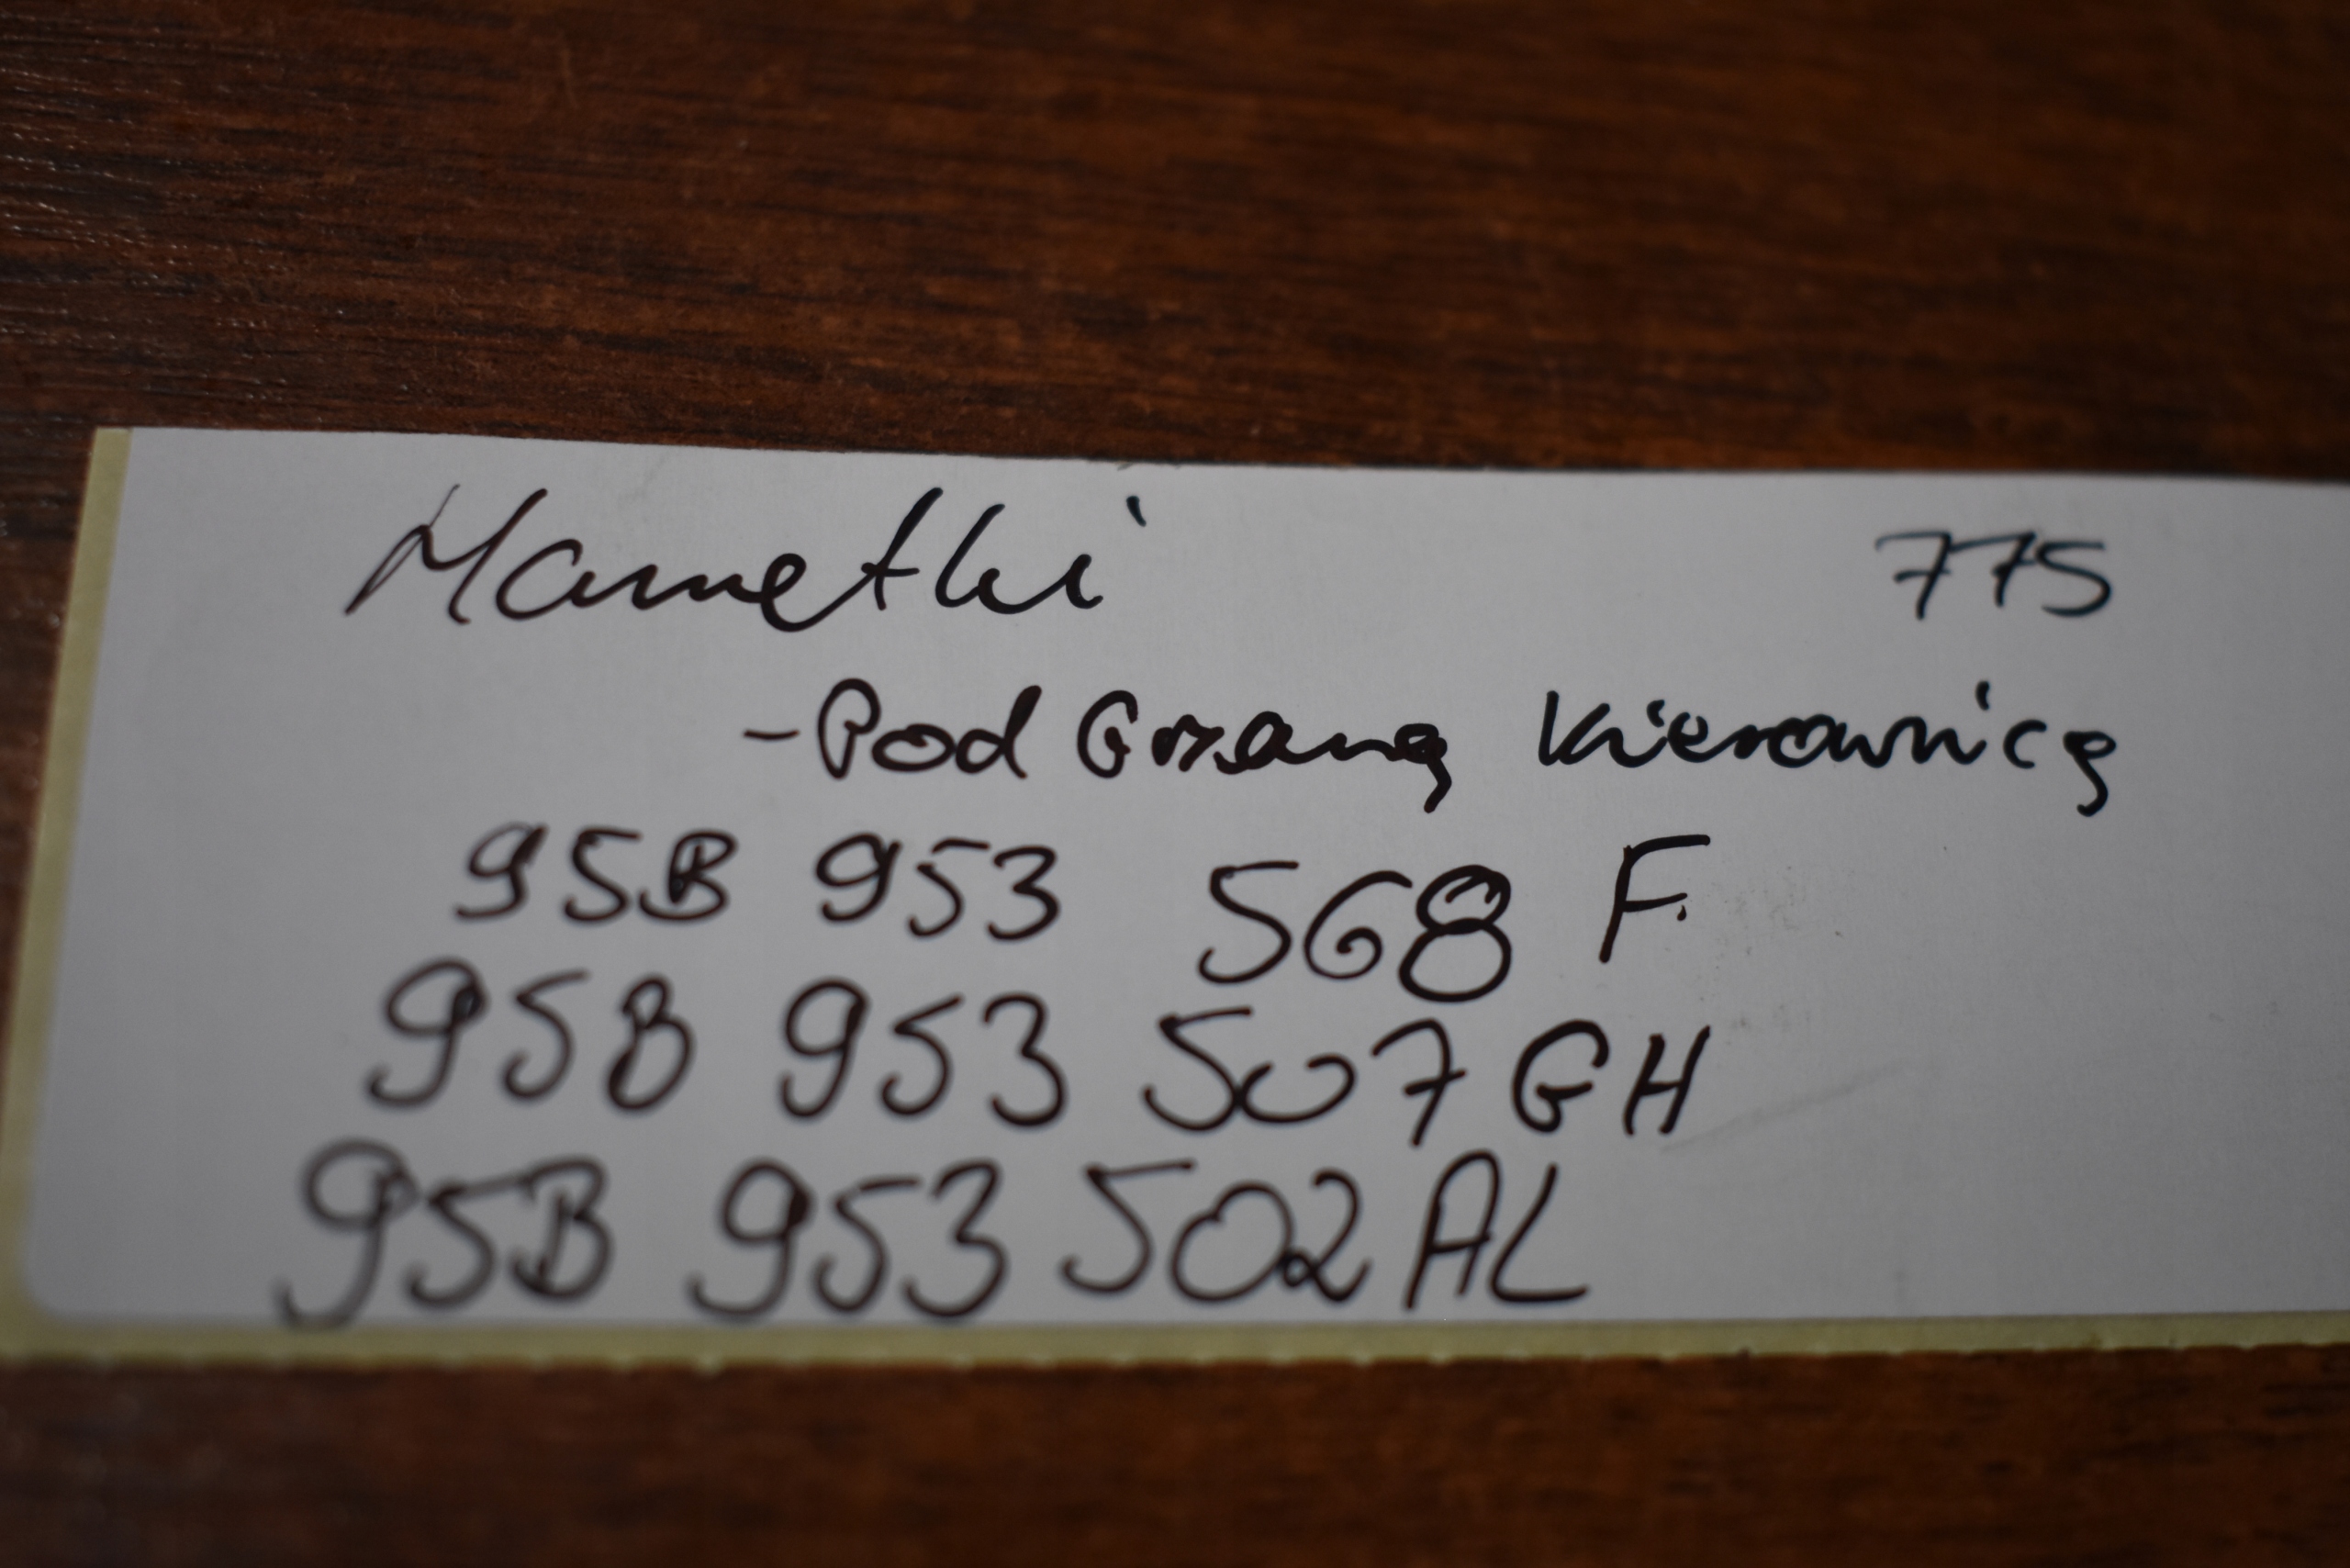 Manetki 775
-Pod Grzaną Kierownicę
95B 953 568 F
95B 953 507 GH
95B 953 502 AL